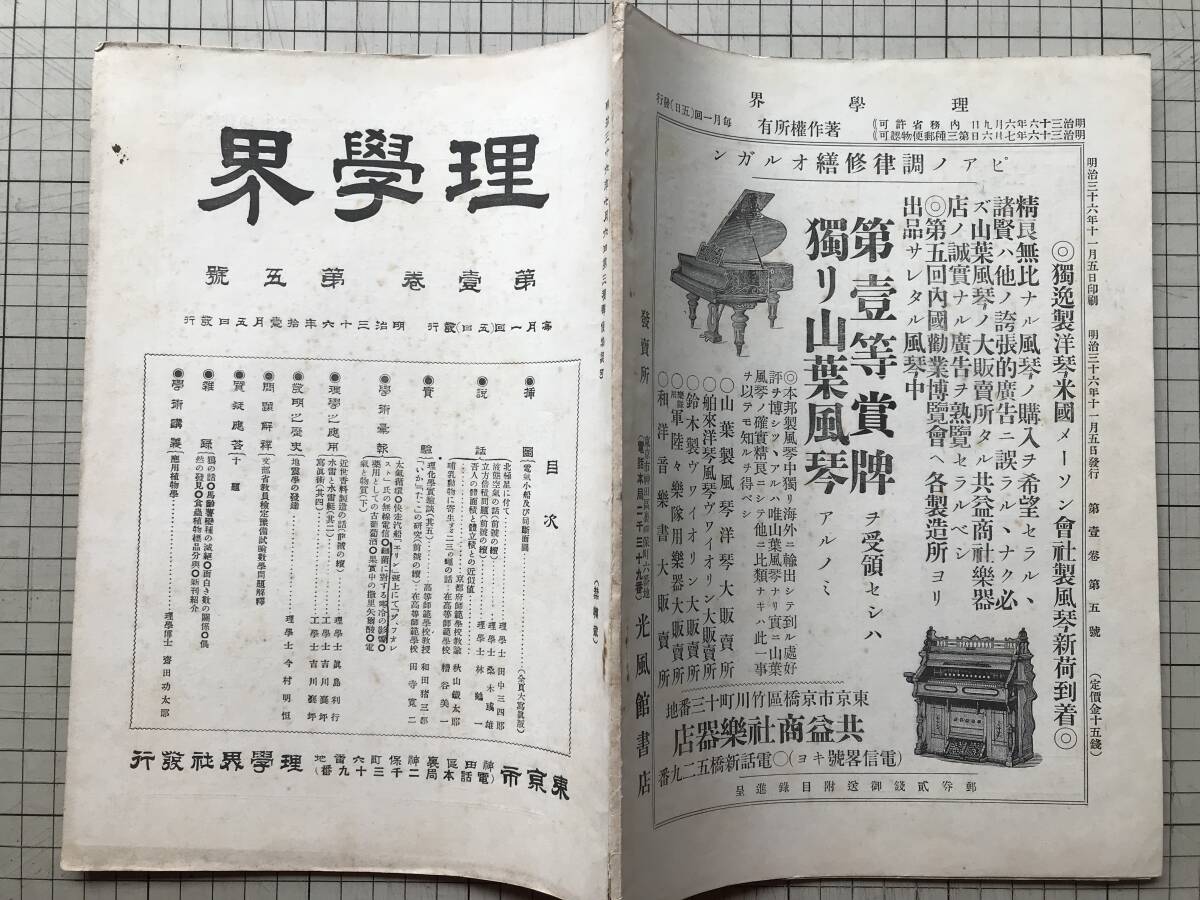 理學界
第壹卷 第五號
每月一回(五日)發行 明治三十六年拾壹月五日發行
目次
(禁轉載)
◉插圖 電氣小船及び同斷面圖……(全頁大寫眞版)
◉說話
北極星に付て……理學士 田中三四郎
液態空氣の話(前號の續)……理學士 桑木彧雄
立方倍積問題(前號の續)……理學士 林鶴一
吾人の體面積と體立積との近似値……京都府師範學校敎諭 秋山鐵太郎
哺乳動物に寄生する二三の蠅の話…在高等師範學校 糟谷美一
◉實驗
理化學實驗談(其五)……高等師範學校敎授 和田猪三郎
「いか」「たこ」の研究(前號の續)…在高等師範學校 田寺寬二
◉學術彙報
太氣循環◉快走汽船「エリン」號上にて「デ、フォレスト」氏の無線電信◉細菌に對する寒冷の影響◉藥用としての古葡萄酒◉果實中の撒里矢爾酸◉電氣物質(下)
◉理學之應用
近世香料製造の話(前號の續)……理學士 眞島利行
水雷と水雷艇(其二)……工學士 吉川襄坪
寫眞術(其四)……工學士 吉川襄坪
◉說明之歷史 地震學の發達……理學士 今村明恒
◉問題解釋 文部省敎員檢定豫備試驗數學問題解釋
◉質疑應答 十題
◉雜錄
◉學術講義 應用植物學……理學博士 齋田功太郎
東京市神田區裏神保町三十六番地(電話本局千二百雷九番) 理學界社發行
理學界
明治三十六年六月九日內務省許可
明治三十六年七月六日第三種郵便物認可
著作權所有
每月一回(五日)發行
明治三十六年十一月五日印刷 明治三十六年十一月五日發行 第壹卷 第五號 (定價金十五錢)
ピアノ調律修繕オルガン
◎獨逸製洋琴米國メーソン會社製風琴新荷到着◎
精良無比ナル風琴ノ購入ヲ希望セラルヽ
諸賢ハ他ノ誇張的廣告ニ誤ラルヽナク必
ズ山葉風琴ノ大販賣所タル共益商社樂器
店ノ誠實ナル廣告ヲ熟覽セラルベシ
◎第五回內國勸業博覽會ヘ各製造所ヨリ
出品サレタル風琴中
第壹等賞牌ヲ受領セシハ
獨リ山葉風琴アルノミ
◎本邦製風琴中獨リ海外ニ輸出シテ到ル處好
評ヲ博シツヽアルハ唯山葉風琴ナリ實ニ山葉
風琴ノ確實精良ニシテ他ニ比類ナキハ此一事
ヲ以テモ知ルヲ得ベシ
○山葉製風琴洋琴大販賣所
○舶來洋琴風琴ヴワイオリン大販賣所
○鈴木製ヴワイオリン大販賣所
○軍陸々樂隊用樂器大販賣所
○和洋音樂書大販賣所
東京市京橋區竹川町十三番地
共益商社樂器店
(電信略號キヨ)◯電話新橋五二九番
郵劵貳錢御送附目錄進呈
發賣所 東京市神田區裏神保町六番地(電話本局二千三十九番) 光風館書店